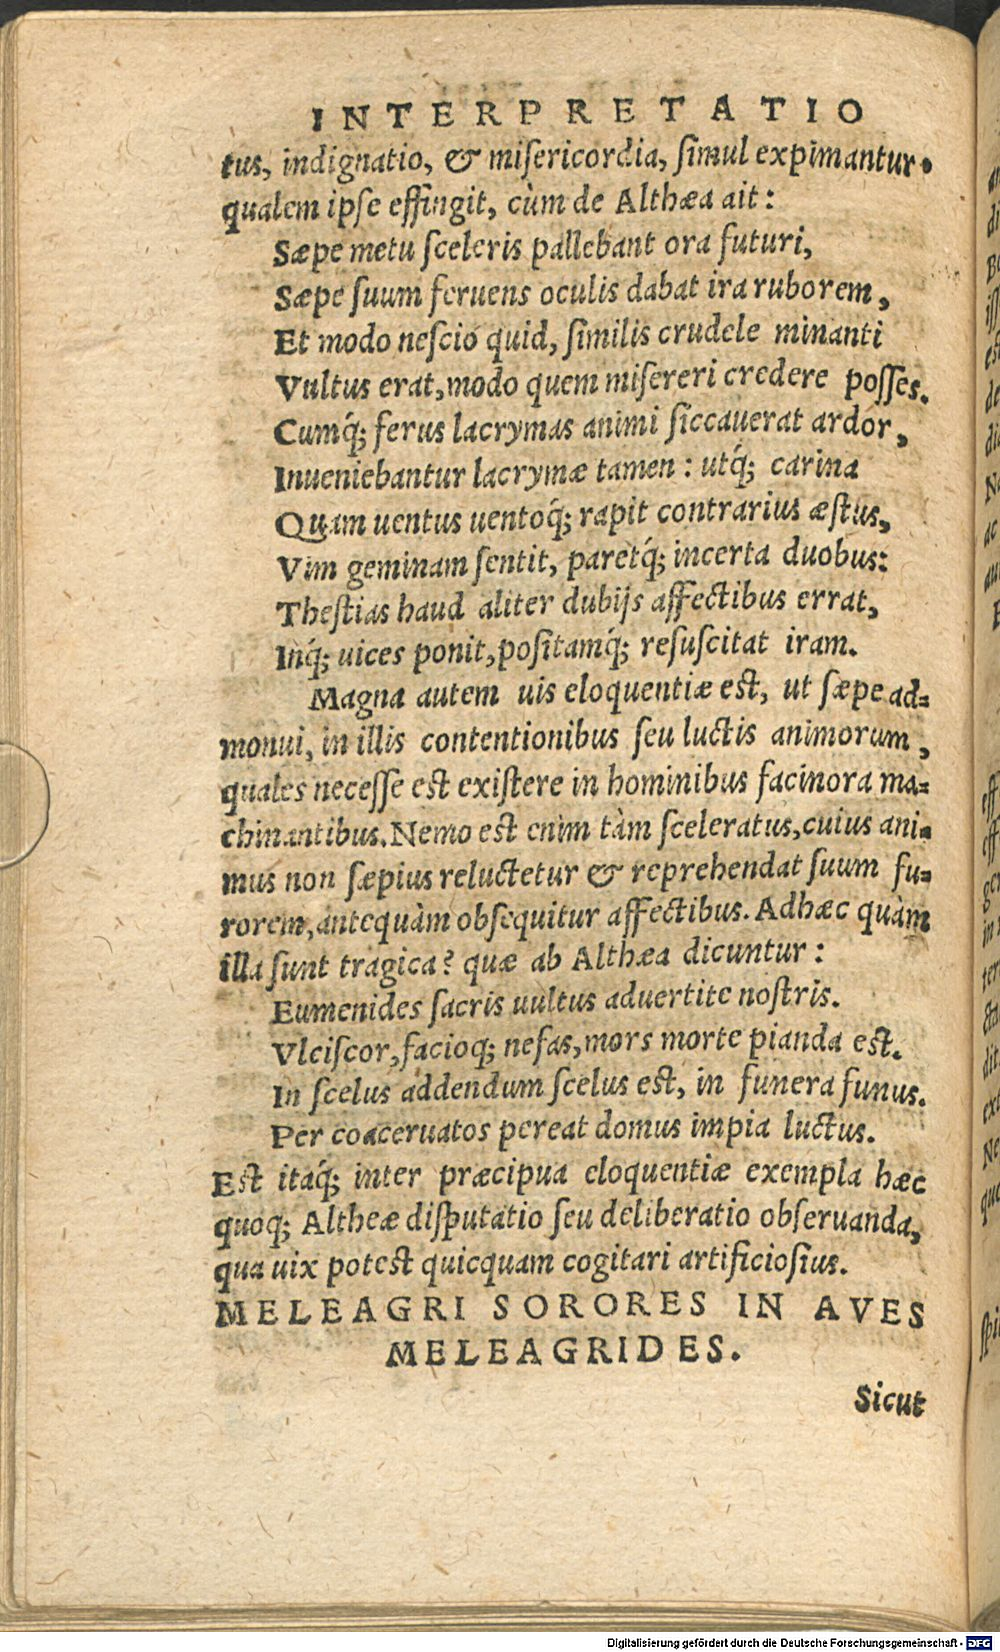 INTERPRETATIO
tus, indignatio, & misericordia, simul expimantur.
qualem ipse effingit, cùm de Althæa ait:
Sæpe metu sceleris pallebant ora futuri,
Sæpe suum feruens oculis dabat ira ruborem,
Et modo nescio quid, similis crudele minanti
Vultus erat, modo quem misereri credere posses.
Cumq́; ferus lacrymas animi siccauerat ardor,
Inueniebantur lacrymæ tamen: utq́; carina
Quam uentus uentoq́; rapit contrarius æstus,
Vim geminam sentit, paretq́; incerta duobus:
Thestias haud aliter dubijs affectibus errat,
Inq́; uices ponit, positamq́; resuscitat iram.
Magna autem uis eloquentiæ est, ut sæpe ad-
monui, in illis contentionibus seu luctis animorum,
quales necesse est existere in hominibus facinora ma-
chinantibus. Nemo est enim tàm sceleratus, cuius ani-
mus non sæpius reluctetur & reprehendat suum fu-
rorem, antequàm obsequitur affectibus. Adhæc quàm
illa sunt tragica? quæ ab Althæa dicuntur:
Eumenides sacris uultus aduertite nostris.
Vlciscor, facioq́; nefas, mors morte pianda est.
In scelus addendum scelus est, in funera funus.
Per coaceruatos pereat domus impia luctus.
Est itaq́; inter præcipua eloquentiæ exempla hæc
quoq; Altheæ disputatio seu deliberatio obseruanda,
qua uix potest quicquam cogitari artificiosius.
MELEAGRI SORORES IN AVES
MELEAGRIDES.
Sicut
Digitalisierung gefördert durch die Deutsche Forschungsgemeinschaft - DFG